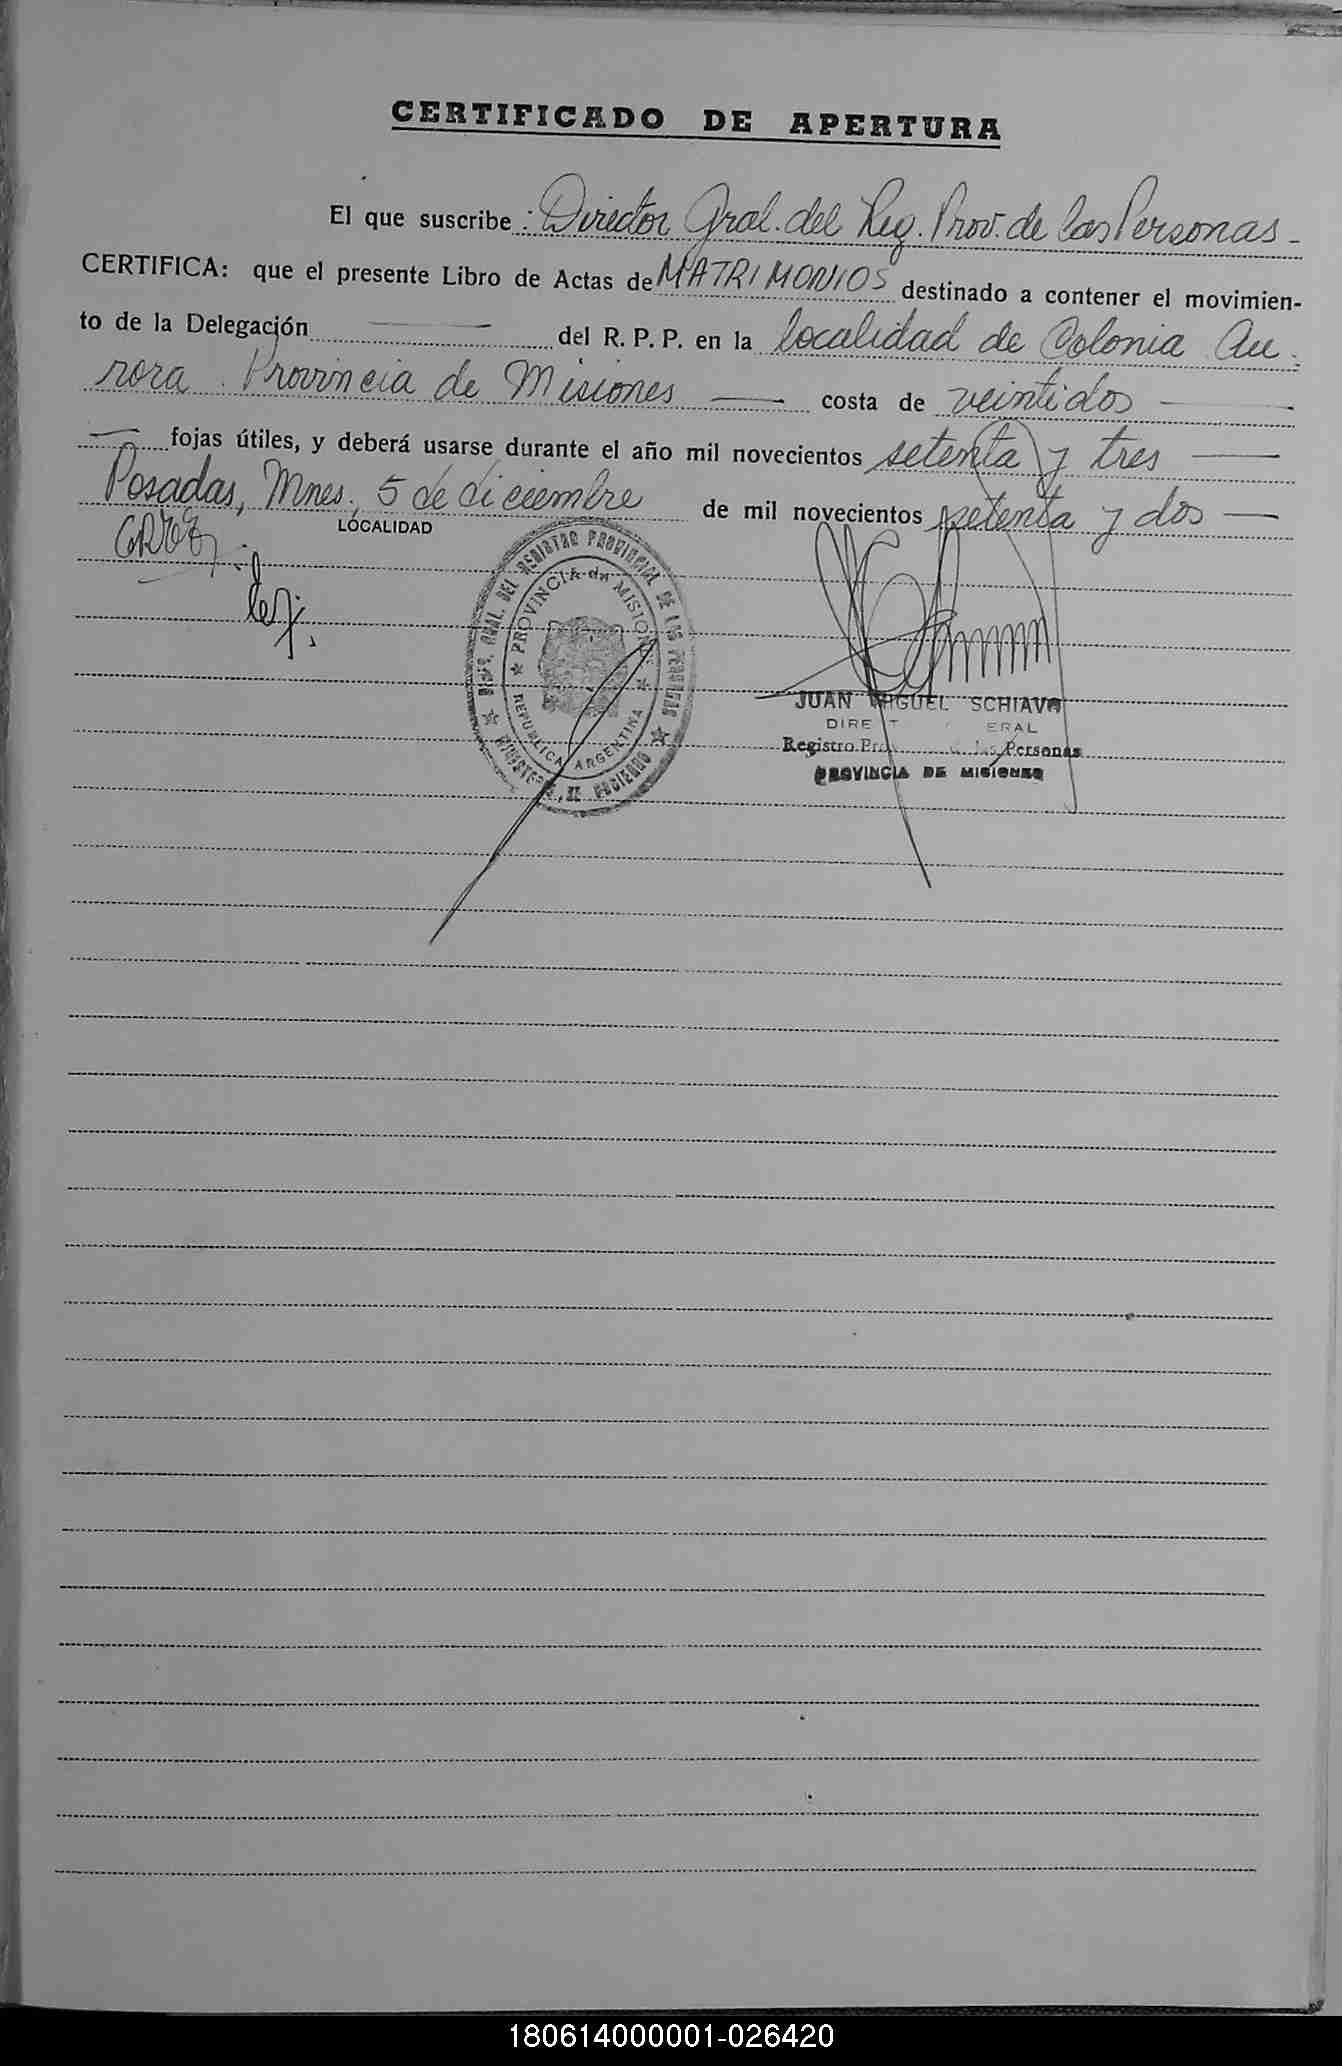 CERTIFICADO DE APERTURA
El que suscribe: Director Gral. del Reg. Prov. de las Personas -
CERTIFICA: que el presente Libro de Actas de MATRIMONIOS destinado a contener el movimien-
to de la Delegación — del R. P. P. en la localidad de Colonia Au-
rora. Provincia de Misiones — costa de veintidos —
— fojas útiles, y deberá usarse durante el año mil novecientos setenta y tres —
Posadas, Mnes, 5 de diciembre de mil novecientos setenta y dos —
LOCALIDAD
REGISTRO PROVINCIAL DE LAS PERSONAS
GRAL. DEL
PROVINCIA de MISIONES
REPUBLICA ARGENTINA
JUAN MIGUEL SCHIAVO
Registro Personas
PROVINCIA DE MISIONES
180614000001-026420